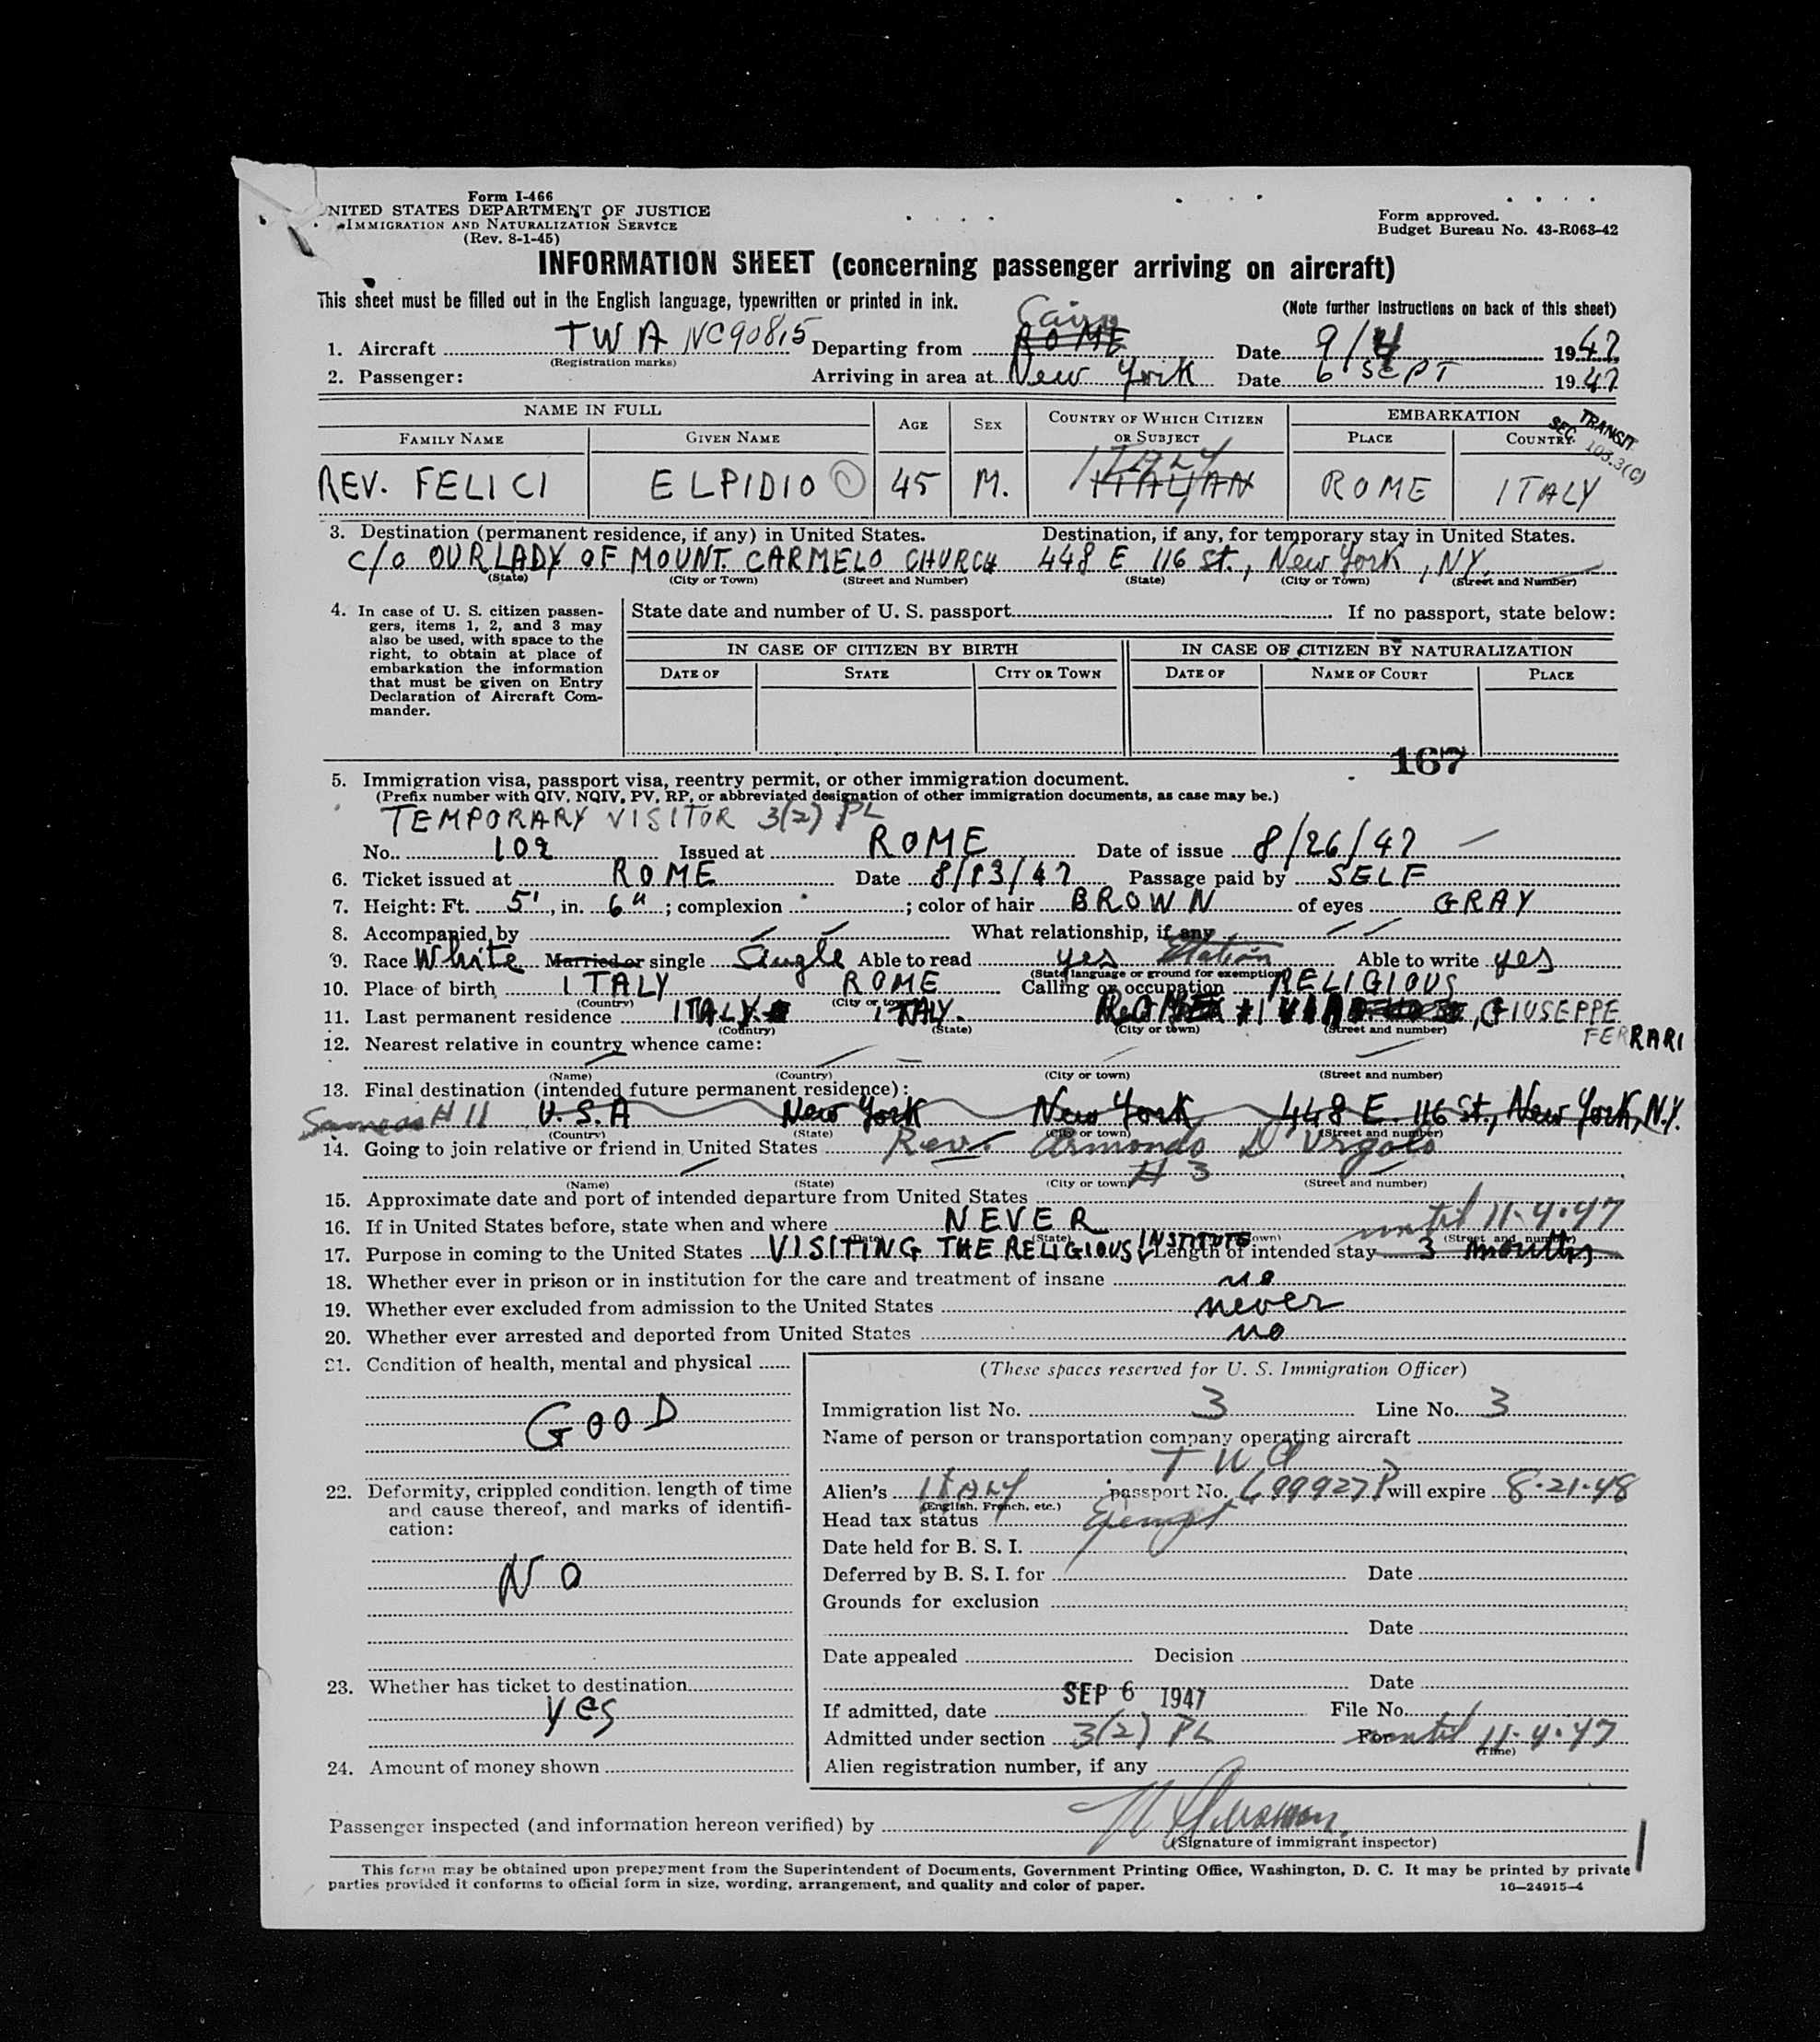 Form I-466
UNITED STATES DEPARTMENT OF JUSTICE
IMMIGRATION AND NATURALIZATION SERVICE
(Rev. 8-1-45)
Form approved.
Budget Bureau No. 43-R063-42
INFORMATION SHEET (concerning passenger arriving on aircraft)
This sheet must be filled out in the English language, typewritten or printed in ink.
(Note further instructions on back of this sheet)
Cairo
1. Aircraft TWA NC90815 Departing from ROME Date 9/4 1947
(Registration marks)
2. Passenger: Arriving in area at New York Date 6 SEPT 1947
NAME IN FULL AGE SEX COUNTRY OF WHICH CITIZEN OR SUBJECT EMBARKATION
FAMILY NAME GIVEN NAME PLACE COUNTRY
TRANSIT
SEC. 103.3(C)
ITALY
REV. FELICI ELPIDIO 45 M. ITALIAN ROME ITALY
3. Destination (permanent residence, if any) in United States. Destination, if any, for temporary stay in United States.
c/o OUR LADY OF MOUNT. CARMELO CHURCH 448 E 116 St., New York, NY.
(State) (City or Town) (Street and Number) (State) (City or Town) (Street and Number)
4. In case of U. S. citizen passen-
gers, items 1, 2, and 3 may
also be used, with space to the
right, to obtain at place of
embarkation the information
that must be given on Entry
Declaration of Aircraft Com-
mander.
State date and number of U. S. passport If no passport, state below:
IN CASE OF CITIZEN BY BIRTH IN CASE OF CITIZEN BY NATURALIZATION
DATE OF STATE CITY OR TOWN DATE OF NAME OF COURT PLACE
167
5. Immigration visa, passport visa, reentry permit, or other immigration document.
(Prefix number with QIV, NQIV, PV, RP, or abbreviated designation of other immigration documents, as case may be.)
TEMPORARY VISITOR 3(2) PL
No. 102 Issued at ROME Date of issue 8/26/47
6. Ticket issued at ROME Date 8/13/47 Passage paid by SELF
7. Height: Ft. 5', in. 6"; complexion ; color of hair BROWN of eyes GRAY
8. Accompanied by What relationship, if any
9. Race White Married or single Single Able to read yes Italian Able to write yes
(State language or ground for exemption)
10. Place of birth ITALY ROME Calling or occupation RELIGIOUS
(Country) (City or town)
11. Last permanent residence ITALY ITALY. ROME #1 VIA , GIUSEPPE
FERRARI
(Country) (State) (City or town) (Street and number)
12. Nearest relative in country whence came:
(Name) (Country) (City or town) (Street and number)
13. Final destination (intended future permanent residence):
Same as #11 U.S.A New York New York 448 E. 116 St., New York, N.Y.
(Country) (State) (City or town) (Street and number)
14. Going to join relative or friend in United States Rev. Armondo D
# 3
(Name) (State) (City or town) (Street and number)
15. Approximate date and port of intended departure from United States
16. If in United States before, state when and where NEVER until 11-4-47
(Date) (State) (Street and number)
17. Purpose in coming to the United States VISITING THE RELIGIOUS INSTITUTE Length of intended stay 3 months
18. Whether ever in prison or in institution for the care and treatment of insane no
19. Whether ever excluded from admission to the United States never
20. Whether ever arrested and deported from United States no
21. Condition of health, mental and physical
GOOD
22. Deformity, crippled condition, length of time
and cause thereof, and marks of identifi-
cation:
NO
23. Whether has ticket to destination
yes
24. Amount of money shown
(These spaces reserved for U. S. Immigration Officer)
Immigration list No. 3 Line No. 3
Name of person or transportation company operating aircraft
TWA
Alien's ITALY passport No. 699927P will expire 8-21-48
(English, French, etc.)
Head tax status Exempt
Date held for B. S. I.
Deferred by B. S. I. for Date
Grounds for exclusion
Date
Date appealed Decision
Date
If admitted, date SEP 6 1947 File No.
Admitted under section 3(2) PL For until 11-4-47
(Time)
Alien registration number, if any
Passenger inspected (and information hereon verified) by
(Signature of immigrant inspector)
This form may be obtained upon prepayment from the Superintendent of Documents, Government Printing Office, Washington, D. C. It may be printed by private
parties provided it conforms to official form in size, wording, arrangement, and quality and color of paper.
16—24915-4